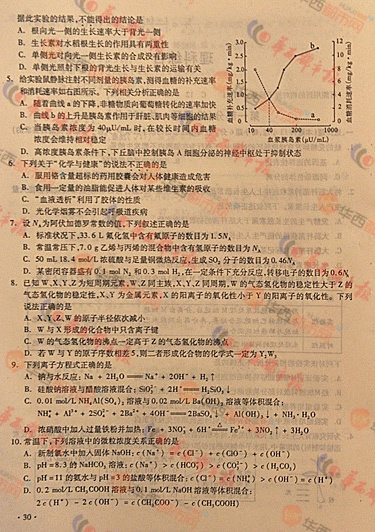 据此实验的结果,不能得出的结论是
A. 根向光一侧的生长速率大于背光一侧
B. 生长素对水稻根生长的作用具有两重性
C. 单侧光对向光一侧生长素的合成没有影响
D. 单侧光照射下根的背光生长与生长素的运输有关
5. 给实验鼠静脉注射不同剂量的胰岛素,测得血糖的补充速率
和消耗速率如右图所示。下列相关分析正确的是
A. 随着曲线a的下降,非糖物质向葡萄糖转化的速率加快
B. 曲线b的上升是胰岛素作用于肝脏、肌肉等细胞的结果
C. 当胰岛素浓度为40μU/mL时,在较长时间内血糖
浓度会维持相对稳定
D. 高浓度胰岛素条件下,下丘脑中控制胰岛A细胞分泌的神经中枢处于抑制状态
血糖补充速率(mg/kg·min)
血糖消耗速率(mg/kg·min)
3.0 2.5 2.0 1.5 1.0 0.5 0
12 10 8 6 4 2 0
b
a
10 40 200 1000
血浆胰岛素(μU/mL)
6. 下列关于“化学与健康”的说法不正确的是
A. 服用铬含量超标的药用胶囊会对人体健康造成危害
B. 食用一定量的油脂能促进人体对某些维生素的吸收
C. “血液透析”利用了胶体的性质
D. 光化学烟雾不会引起呼吸道疾病
7. 设NA为阿伏加德罗常数的值,下列叙述正确的是
A. 标准状况下,33.6 L氟化氢中含有氟原子的数目为1.5NA
B. 常温常压下,7.0 g乙烯与丙烯的混合物中含有氢原子的数目为NA
C. 50 mL 18.4 mol/L浓硫酸与足量铜微热反应,生成SO2分子的数目为0.46NA
D. 某密闭容器盛有0.1 mol N2和0.3 mol H2,在一定条件下充分反应,转移电子的数目为0.6NA
8. 已知W、X、Y、Z为短周期元素,W、Z同主族,X、Y、Z同周期,W的气态氢化物的稳定性大于Z的
气态氢化物的稳定性,X、Y为金属元素,X的阳离子的氧化性小于Y的阳离子的氧化性。下列
说法正确的是
A. X、Y、Z、W的原子半径依次减小
B. W与X形成的化合物中只含离子键
C. W的气态氢化物的沸点一定高于Z的气态氢化物的沸点
D. 若W与Y的原子序数相差5,则二者形成化合物的化学式一定为Y2W3
9. 下列离子方程式正确的是
A. 钠与水反应:Na+2H2O═Na⁺+2OH⁻+H2↑
B. 硅酸钠溶液与醋酸溶液混合:SiO3²⁻+2H⁺═H2SiO3↓
C. 0.01 mol/L NH4Al(SO4)2溶液与0.02 mol/L Ba(OH)2溶液等体积混合:
NH4⁺+Al³⁺+2SO4²⁻+2Ba²⁺+4OH⁻═2BaSO4↓+Al(OH)3↓+NH3·H2O
D. 浓硝酸中加入过量铁粉并加热:Fe+3NO3⁻+6H⁺═Fe³⁺+3NO2↑+3H2O
10. 常温下,下列溶液中的微粒浓度关系正确的是
A. 新制氯水中加入固体NaOH:c(Na⁺)=c(Cl⁻)+c(ClO⁻)+c(OH⁻)
B. pH=8.3的NaHCO3溶液:c(Na⁺)>c(HCO3⁻)>c(CO3²⁻)>c(H2CO3)
C. pH=11的氨水与pH=3的盐酸等体积混合:c(Cl⁻)=c(NH4⁺)>c(OH⁻)=c(H⁺)
D. 0.2 mol/L CH3COOH溶液与0.1 mol/L NaOH溶液等体积混合:
2c(H⁺)-2c(OH⁻)=c(CH3COO⁻)-c(CH3COOH)
·30·